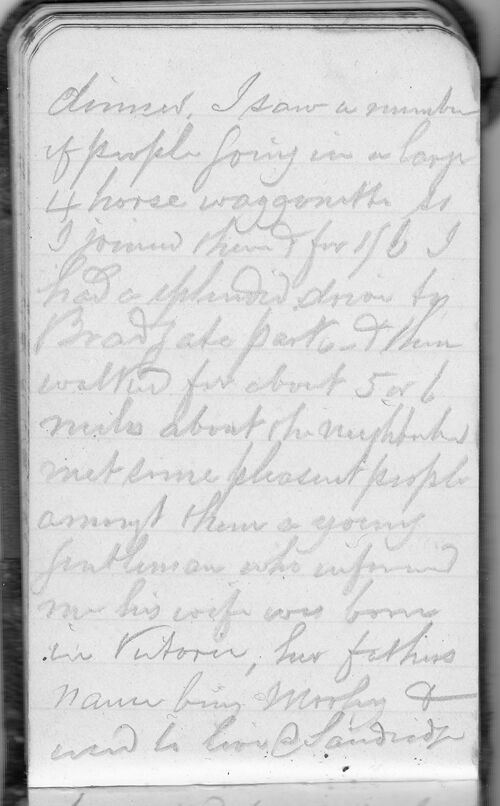 dinner. I saw a number
of people going in a large
4 horse waggonette so
I joined them & for 1/6 I
had a splendid drive to
Bradgate park & then
walked for about 5 or 6
miles about the neighborhood
met some pleasant people
amongst them a young
gentleman who informed
me his wife was born
in Victoria, her fathers
name being Morley &
used to live @ Sandridge